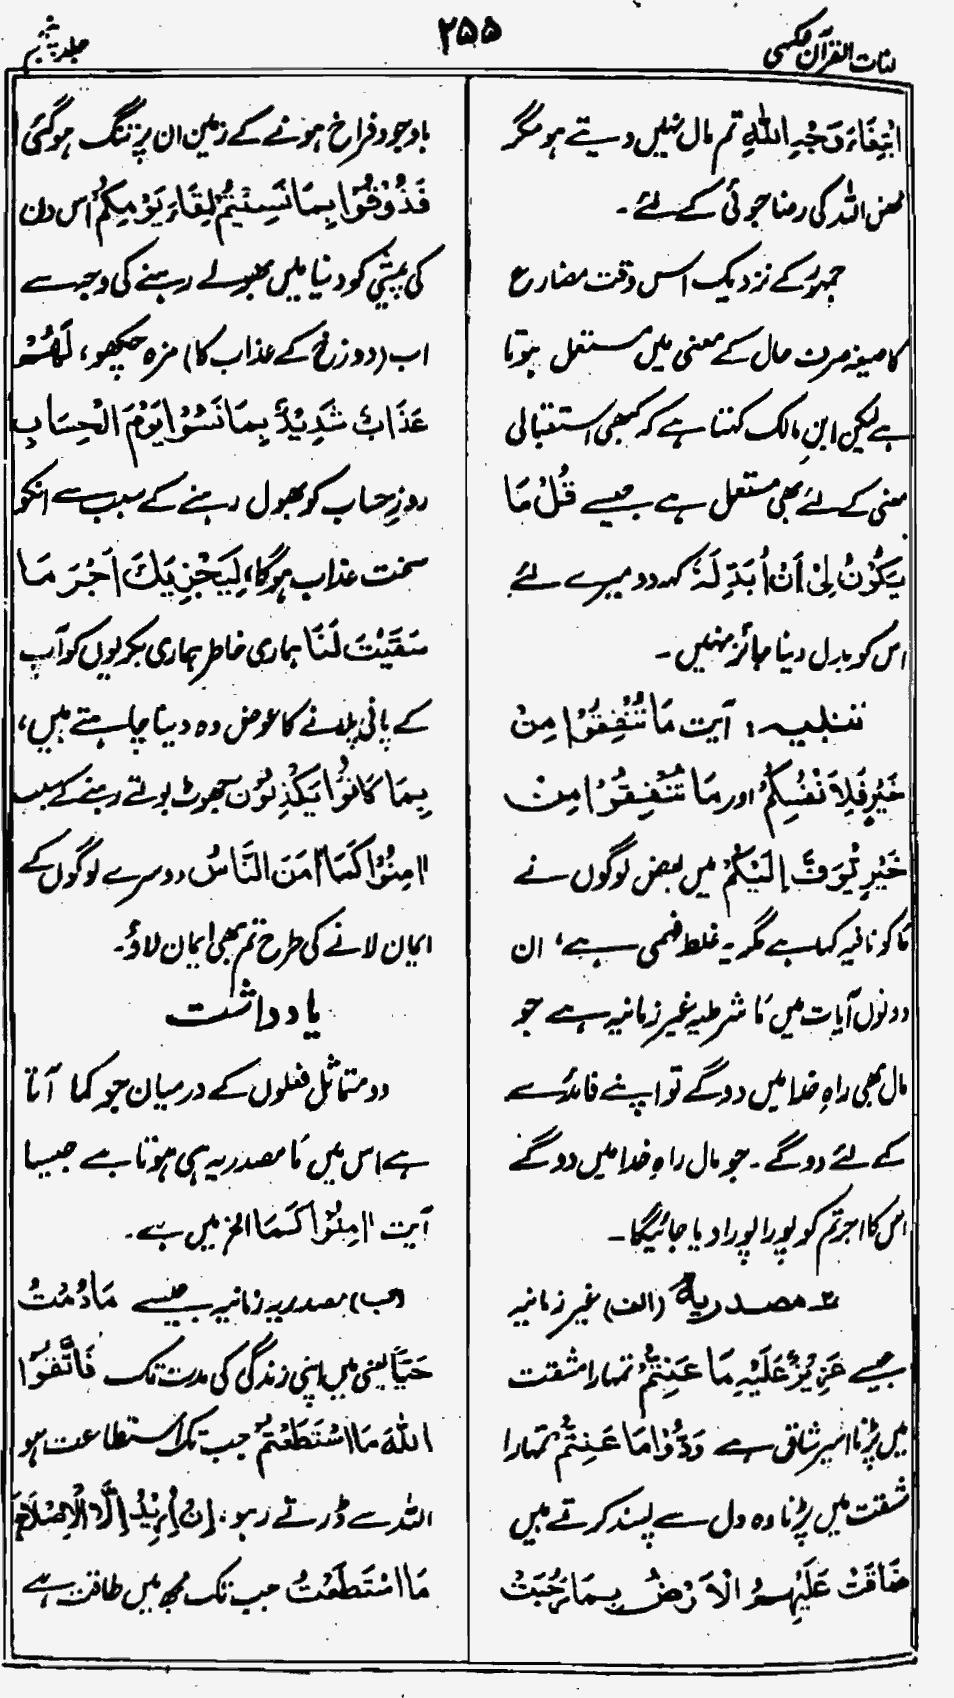 لغات القرآن عکسی
۲۵۵
جلد پنجم
ابْتِغَاءَ وَجْہِ اللّٰہِ تم مال نہیں دیتے ہو مگر
محض اللہ کی رضا جوئی کے لئے۔
جمہور کے نزدیک اس وقت مضارع
کا صیغہ صرف حال کے معنی میں مستعمل ہوتا
ہے لیکن ابنِ مالک کہتا ہے کہ کبھی استقبالی
معنی کے لئے بھی مستعمل ہے جیسے قُلْ مَا
یَکُوْنُ لِیْ اَنْ اُبَدِّلَہٗ کہہ دو میرے لئے
اس کو بدل دینا جائز نہیں۔
تنبیہ: آیت مَا تُنْفِقُوْا مِنْ
خَیْرٍ فَلِاَنْفُسِکُمْ اور مَا تُنْفِقُوْا مِنْ
خَیْرٍ یُّوَفَّ اِلَیْکُمْ میں بعض لوگوں نے
مَا کو نافیہ کہا ہے مگر یہ غلط فہمی ہے، ان
دونوں آیات میں مَا شرطیہ غیر زمانیہ ہے جو
مال بھی راہِ خدا میں دو گے تو اپنے فائدے
کے لئے دو گے۔ جو مال راہِ خدا میں دو گے
اس کا اجر تم کو پورا پورا دیا جائیگا۔
مصدریہ (الف) غیر زمانیہ
جیسے عَزِیْزٌ عَلَیْہِ مَا عَنِتُّمْ تمہارا مشقت
میں پڑنا اسپر شاق ہے وَدُّوْا مَا عَنِتُّمْ تمہارا
مشقت میں پڑنا وہ دل سے پسند کرتے ہیں
ضَاقَتْ عَلَیْہِمُ الْاَرْضُ بِمَا رَحُبَتْ
باوجود فراخ ہونے کے زمین ان پر تنگ ہوگئی
فَذُوْقُوْا بِمَا نَسِیْتُمْ لِقَاءَ یَوْمِکُمْ اس دن
کی پیشی کو دنیا میں بھولے رہنے کی وجہ سے
اب (دوزخ کے عذاب کا) مزہ چکھو، لَہُمْ
عَذَابٌ شَدِیْدٌ بِمَا نَسُوْا یَوْمَ الْحِسَابِ
روزِ حساب کو بھول رہنے کے سبب سے انکو
سخت عذاب ہوگا، لِیَجْزِیَکَ اَجْرَ مَا
سَقَیْتَ لَنَا ہماری خاطر ہماری بکریوں کو آپ
کے پانی پلانے کا عوض وہ دینا چاہتے ہیں،
بِمَا کَانُوْا یَکْذِبُوْنَ جھوٹ بولتے رہنے کے سبب
اٰمِنُوْا کَمَا اٰمَنَ النَّاسُ دوسرے لوگوں کے
ایمان لانے کی طرح تم بھی ایمان لاؤ۔
یادداشت
دو متماثل فعلوں کے درمیان جو کما آتا
ہے اس میں مَا مصدریہ ہی ہوتا ہے جیسا
آیت اٰمِنُوْا کَمَا الخ میں ہے۔
(ب) مصدریہ زمانیہ جیسے مَا دُمْتُ
حَیًّا یعنی میں اپنی زندگی کی مدت تک فَاتَّقُوْا
اللّٰہَ مَا اسْتَطَعْتُمْ جب تک استطاعت ہو
اللہ سے ڈرتے رہو، اِنْ اُرِیْدُ اِلَّا الْاِصْلَاحَ
مَا اسْتَطَعْتُ جب تک مجھ میں طاقت ہے